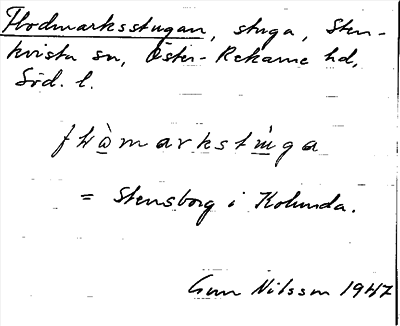 Flodmarksstugan, stuga, Sten-
kvista sn, Öster-Rekarne hd,
Söd. l.
= Stensborg i Kolunda.
Gun Nilsson 1947